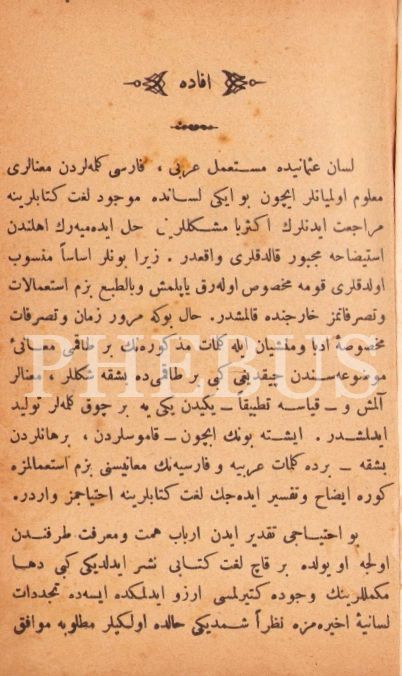 افاده
لسان عثمانیده مستعمل عربی ، فارسی كله‌لردن معنالری
معلوم اولمیانلر ایچون بو ایكی لسانده موجود لغت كتابلرینه
مراجعت ایدنلرك اكثریا مشكللرینی حل ایده‌میه‌رك اهلندن
استیضاحه مجبور قالدقلری واقعدر . زیرا بونلر اساساً منسوب
اولدقلری قومه مخصوص اوله‌رق یاپلمش وبالطبع بزم استعمالات
وتصرفاتمز خارجنده قالمشدر. حال بوكه مرور زمان وتصرفات
مخصوصهٔ ادبا ومنشیان ایله كلمات مذكوره‌نك بر طاقمی معانئ
موضوعه‌سندن چیقدیغی كبی بر طاقمی ده بشقه شكللر ، معنالر
آلمش و ــ قیاسه تطبیقاً ــ یكیدن یكی یه بر چوق كله‌لر تولید
ایدلمشدر . ایشته بونك ایچون ــ قاموسلردن ، برهانلردن
بشقه ــ برده كلمات عربیه و فارسیه‌نك معانیسنی بزم استعمالمزه
كوره ایضاح وتفسیر ایده‌جك لغت كتابلرینه احتیاجمز واردر.
بو احتیاجی تقدیر ایدن ارباب همت ومعرفت طرفندن
اولجه او یولده بر قاچ لغت كتابی نشر ایدلدیكی كبی دها
مكمللرینك وجوده كتیرلمسی آرزو ایدلمكده ایسه‌ده تجددات
لسانیهٔ اخیره‌مزه نظراً شمدیكی حالده اولكیلر مطلوبه موافق
PHEBUS